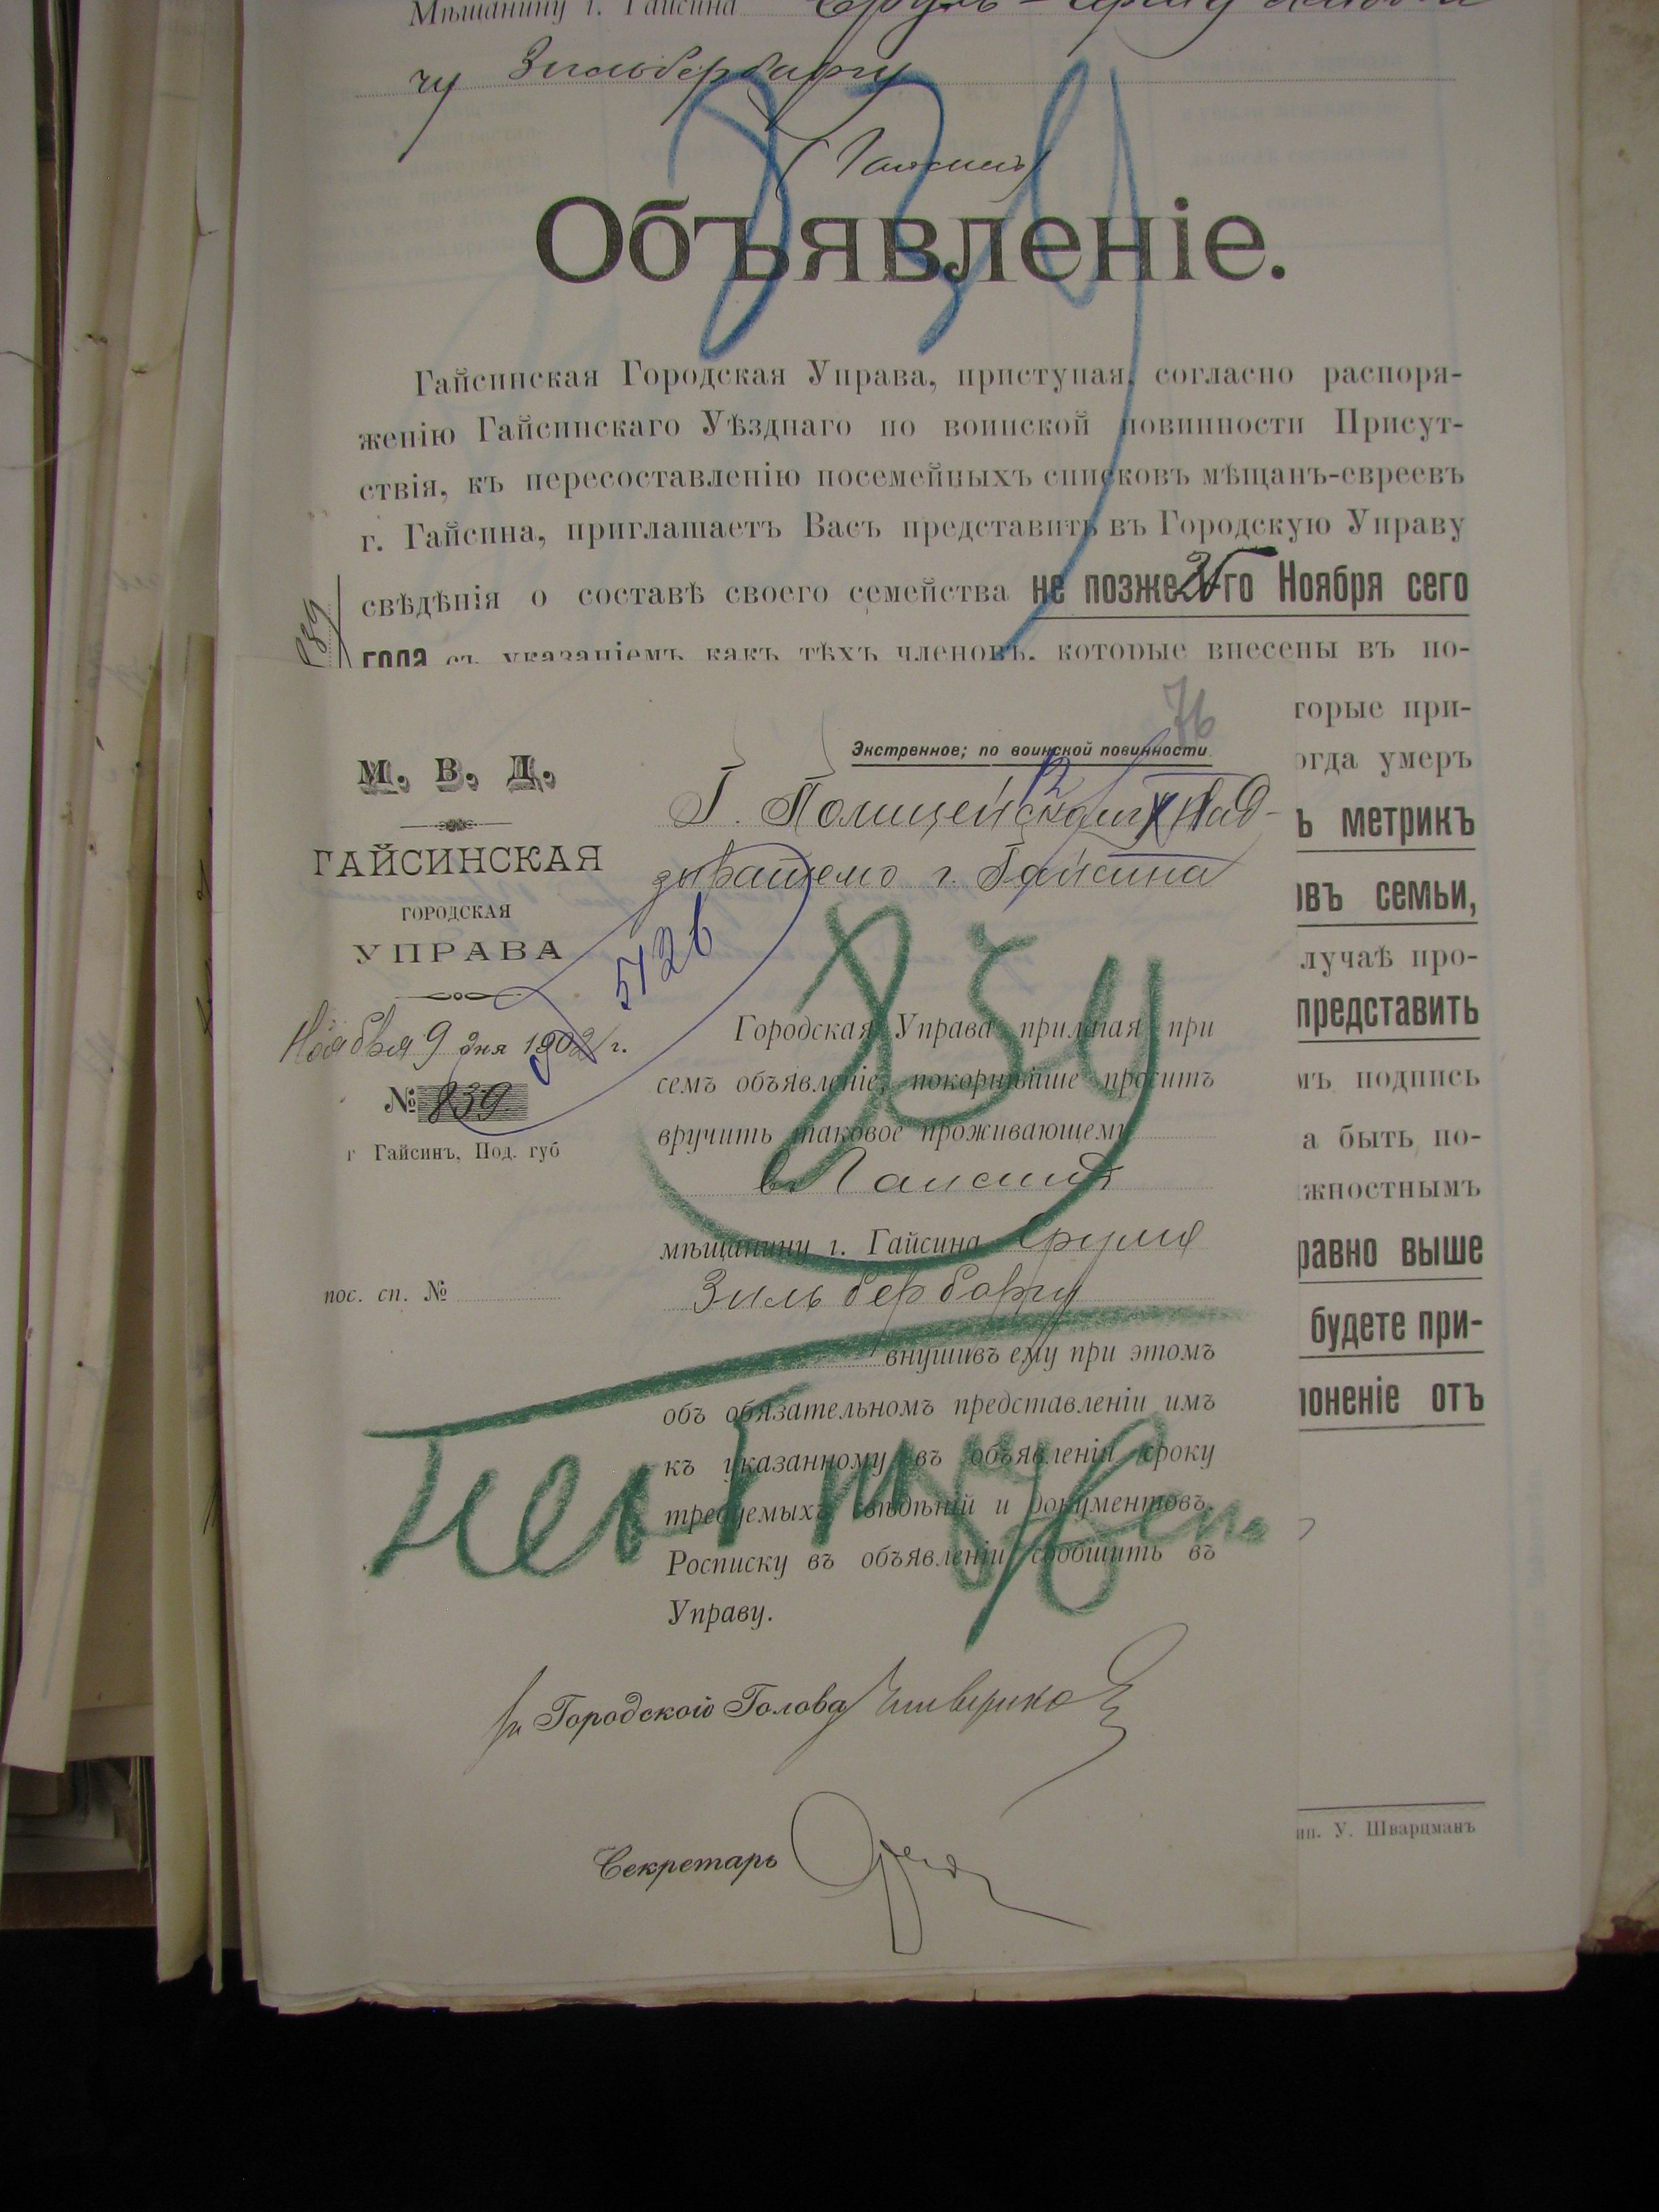 Мѣщанину г. Гайсина
чу Зильбербаргу
(Гайсинъ)
Объявленіе.
Гайсинская Городская Управа, приступая, согласно распоря-
женію Гайсинскаго Уѣзднаго по воинской повинности Присут-
ствія, къ пересоставленію посемейныхъ списковъ мѣщанъ-евреевъ
г. Гайсина, приглашаетъ Васъ представить въ Городскую Управу
свѣдѣнія о составѣ своего семейства не позже го Ноября сего
года съ указаніемъ какъ тѣхъ членовъ, которые внесены въ по-
839
торые при-
огда умеръ
ъ метрикъ
овъ семьи,
лучаѣ про-
представить
мъ подпись
а быть по-
жностнымъ
равно выше
будете при-
лоненіе отъ
ип. У. Шварцманъ
76
Экстренное; по воинской повинности.
М. В. Д.
ГАЙСИНСКАЯ
ГОРОДСКАЯ
УПРАВА
Ноября 9 дня 1902 г.
№ 839
г Гайсинъ, Под. губ
пос. сп. №
5126
Г. Полицейскому Над-
зирателю г. Гайсина
Городская Управа прилагая при
семъ объявленіе, покорнѣйше проситъ
вручить таковое проживающему
въ Гайсинѣ
мѣщанину г. Гайсина Срулю
Зильберборгу
внушивъ ему при этомъ
объ обязательномъ представленіи имъ
къ указанному въ объявленіи сроку
требуемыхъ свѣдѣній и документовъ.
Росписку въ объявленіи сообщить въ
Управу.
Городской Голова
Секретарь